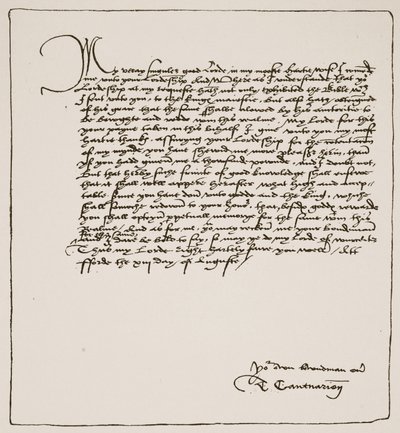 My veray singuler good Lorde, in my moste hartie wise I comend
me unto your Lordeship. And whereas I understande that yor
Lordeship at my requeste hath not only exhibited the Bible wch
I sent unto you, to the kinges maiestie, but also hath obteigned
of his grace that the same shalbe alowed by his auctoritie to
be bowghte and redde within this realme, My Lorde for this
your payne taken in this behalf, I give unto you my moste
hartie thanks, assuryng your Lordeship for the contentacion
of my mynde, you have shewed me more pleasur herin, than
yf you had gyven me a thowsand pownde, and I doubt not,
But that herby suche frute of good knowledge shall ensewe
that it shall well appere hereafter, what high and accep-
table service you have don unto godde and the king, whiche
shall somoche redown to your honor, that, besides godds rewarde
you shall opteyn perpetuall memorye for the same within this
Realme, And as for me, you may recken me your bondman
for the same
And I dare be bold to say, so may ye do my Lord of wourcester
Thus my Lorde right hartely fare you well, Att
fforde the xiii day of Auguste
Yor own bowndman ever
T Cantuarien